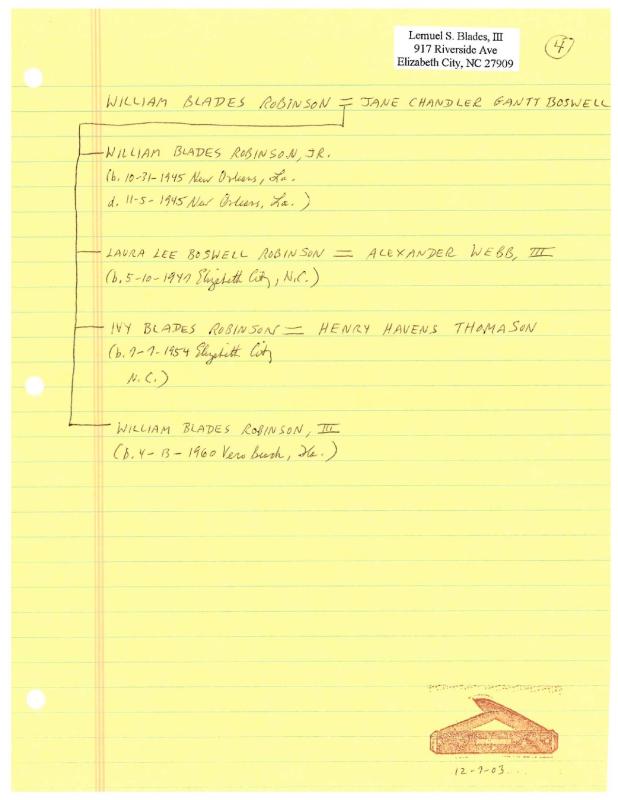 Lemuel S. Blades, III
917 Riverside Ave
Elizabeth City, NC 27909
4
WILLIAM BLADES ROBINSON = JANE CHANDLER GANTT BOSWELL
WILLIAM BLADES ROBINSON, JR.
(b. 10-31-1945 New Orleans, La.
d. 11-5-1945 New Orleans, La.)
LAURA LEE BOSWELL ROBINSON = ALEXANDER WEBB, III
(b. 5-10-1947 Elizabeth City, N.C.)
IVY BLADES ROBINSON = HENRY HAVENS THOMASON
(b. 7-7-1954 Elizabeth City
N.C.)
WILLIAM BLADES ROBINSON, III
(b. 4-13-1960 Vero Beach, Fla.)
12-7-03